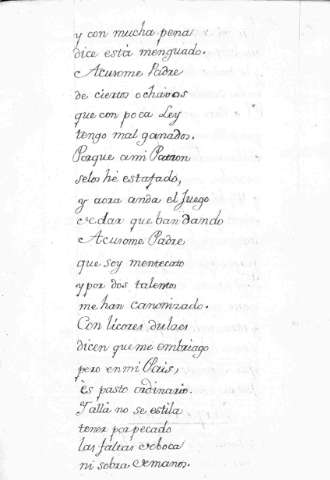 y con mucha pena
dice està menguado.
Acusome Padre
de ciertos ochavos
que con poca Ley
tengo mal ganados.
Porque a mi Patron
selos hé estafado,
y aora anda el Juego
que ban dando
Acusome Padre
que soy mentecato
y por dos talentos
me han canonizado.
Con licores dulces
dicen que me embriago
pero en mi Pais,
es pasto ordinario.
Y allà no se estila
tener por pecado
las faltas de boca
ni sobra de manos.